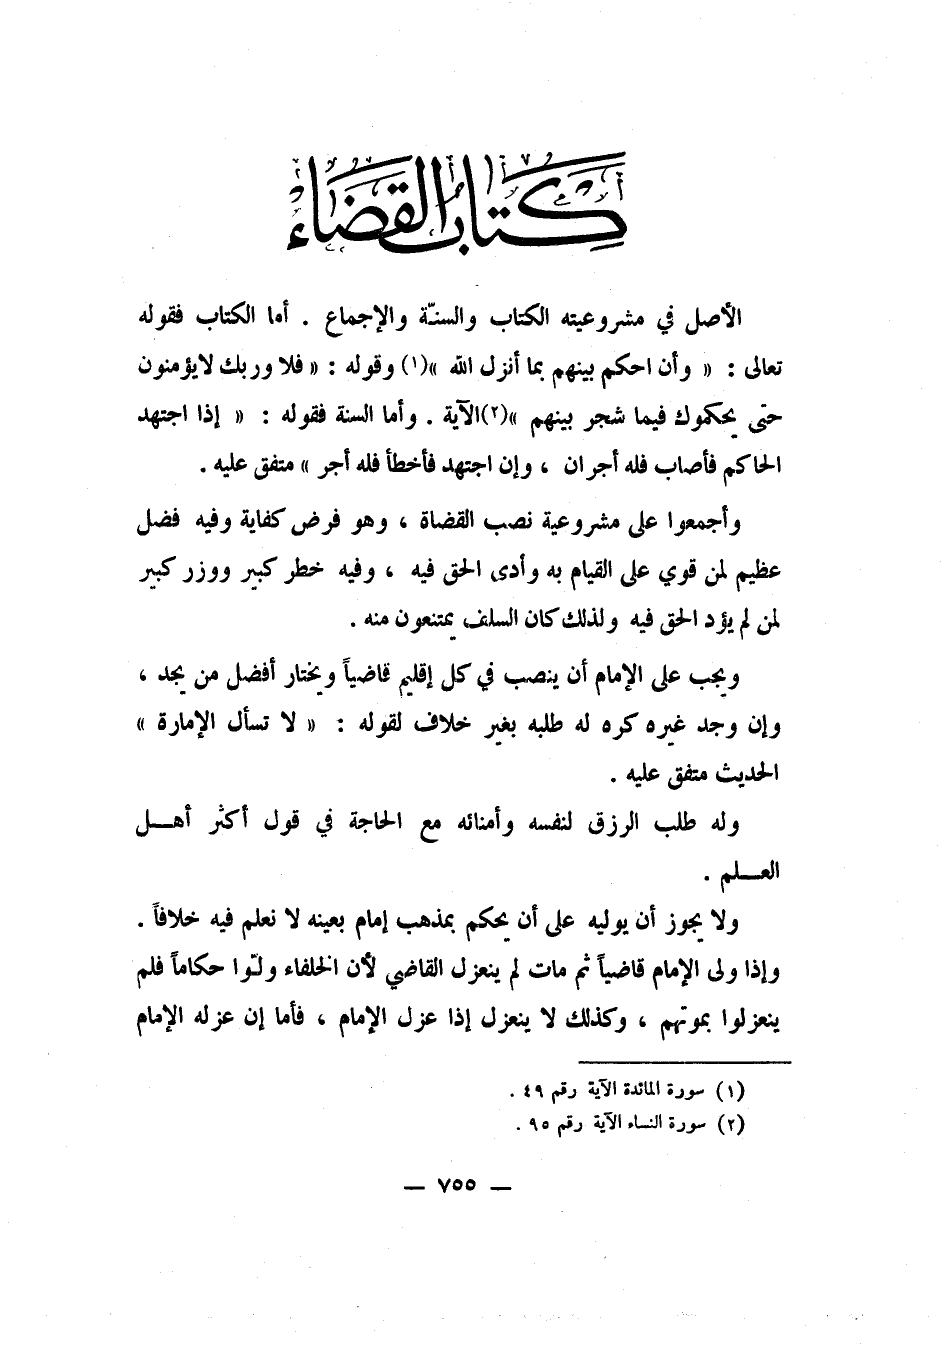 كتاب القضاء
الأصل في مشروعيته الكتاب والسنّة والإجماع . أما الكتاب فقوله
تعالى : « وأن احكم بينهم بما أنزل الله »(١) وقوله : « فلا وربك لايؤمنون
حتى يحكموك فيما شجر بينهم »(٢)الآية . وأما السنة فقوله : « إذا اجتهد
الحاكم فأصاب فله أجران ، وإن اجتهد فأخطأ فله أجر » متفق عليه .
وأجمعوا على مشروعية نصب القضاة ، وهو فرض كفاية وفيه فضل
عظيم لمن قوي على القيام به وأدى الحق فيه ، وفيه خطر كبير ووزر كبير
لمن لم يؤد الحق فيه ولذلك كان السلف يمتنعون منه .
ويجب على الإمام أن ينصب في كل إقليم قاضياً ويختار أفضل من يجد ،
وإن وجد غيره كره له طلبه بغير خلاف لقوله : « لا تسأل الإمارة »
الحديث متفق عليه .
وله طلب الرزق لنفسه وأمنائه مع الحاجة في قول أكثر أهــل
العــلم .
ولا يجوز أن يوليه على أن يحكم بمذهب إمام بعينه لا نعلم فيه خلافاً .
وإذا ولى الإمام قاضياً ثم مات لم ينعزل القاضي لأن الخلفاء ولّوا حكاماً فلم
ينعزلوا بموتهم ، وكذلك لا ينعزل إذا عزل الإمام ، فأما إن عزله الإمام
(١) سورة المائدة الآية رقم ٤٩ .
(٢) سورة النساء الآية رقم ٩٥ .
— ٧٥٥ —